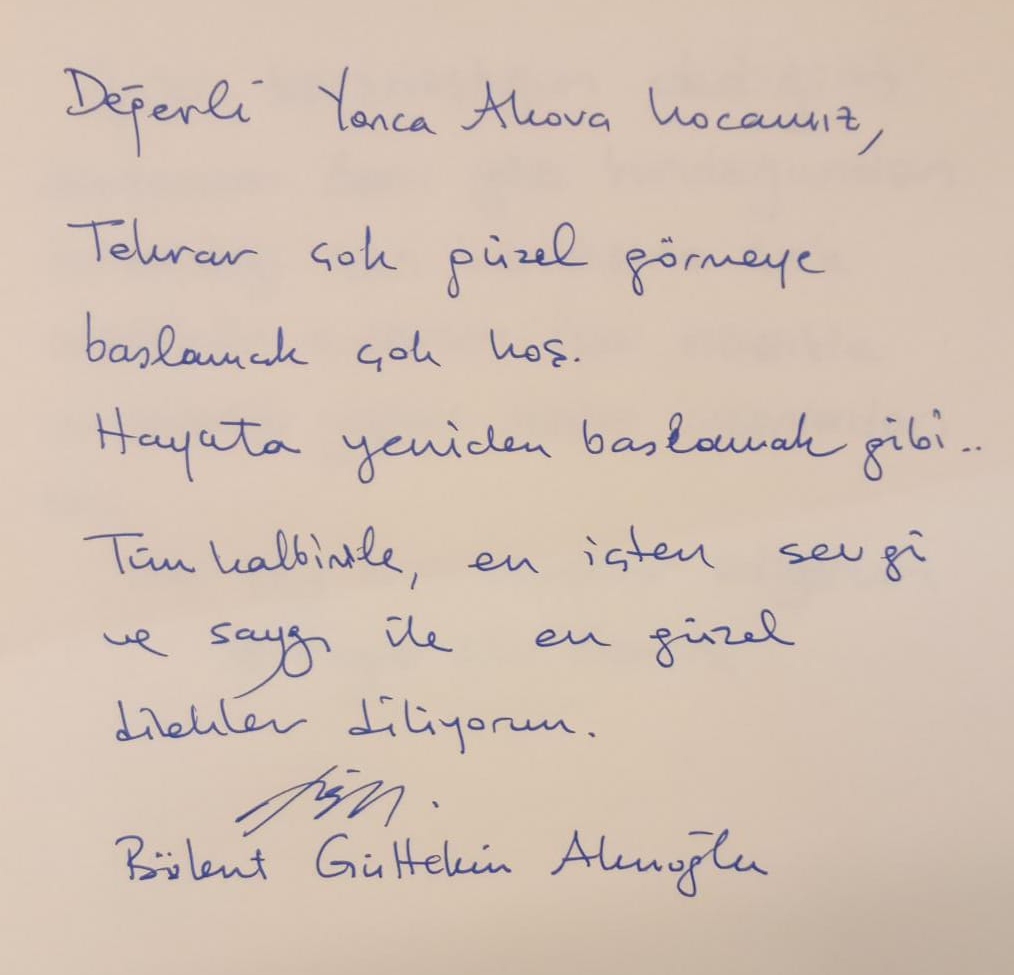 Değerli Yonca Akova hocamız,
Tekrar çok güzel görmeye
baslamak çok hoş.
Hayata yeniden baslamak gibi..
Tüm kalbimle, en içten sevgi
ve saygı ile en güzel
dilekler diliyorum.
Bülent Gültekin Akınoğlu